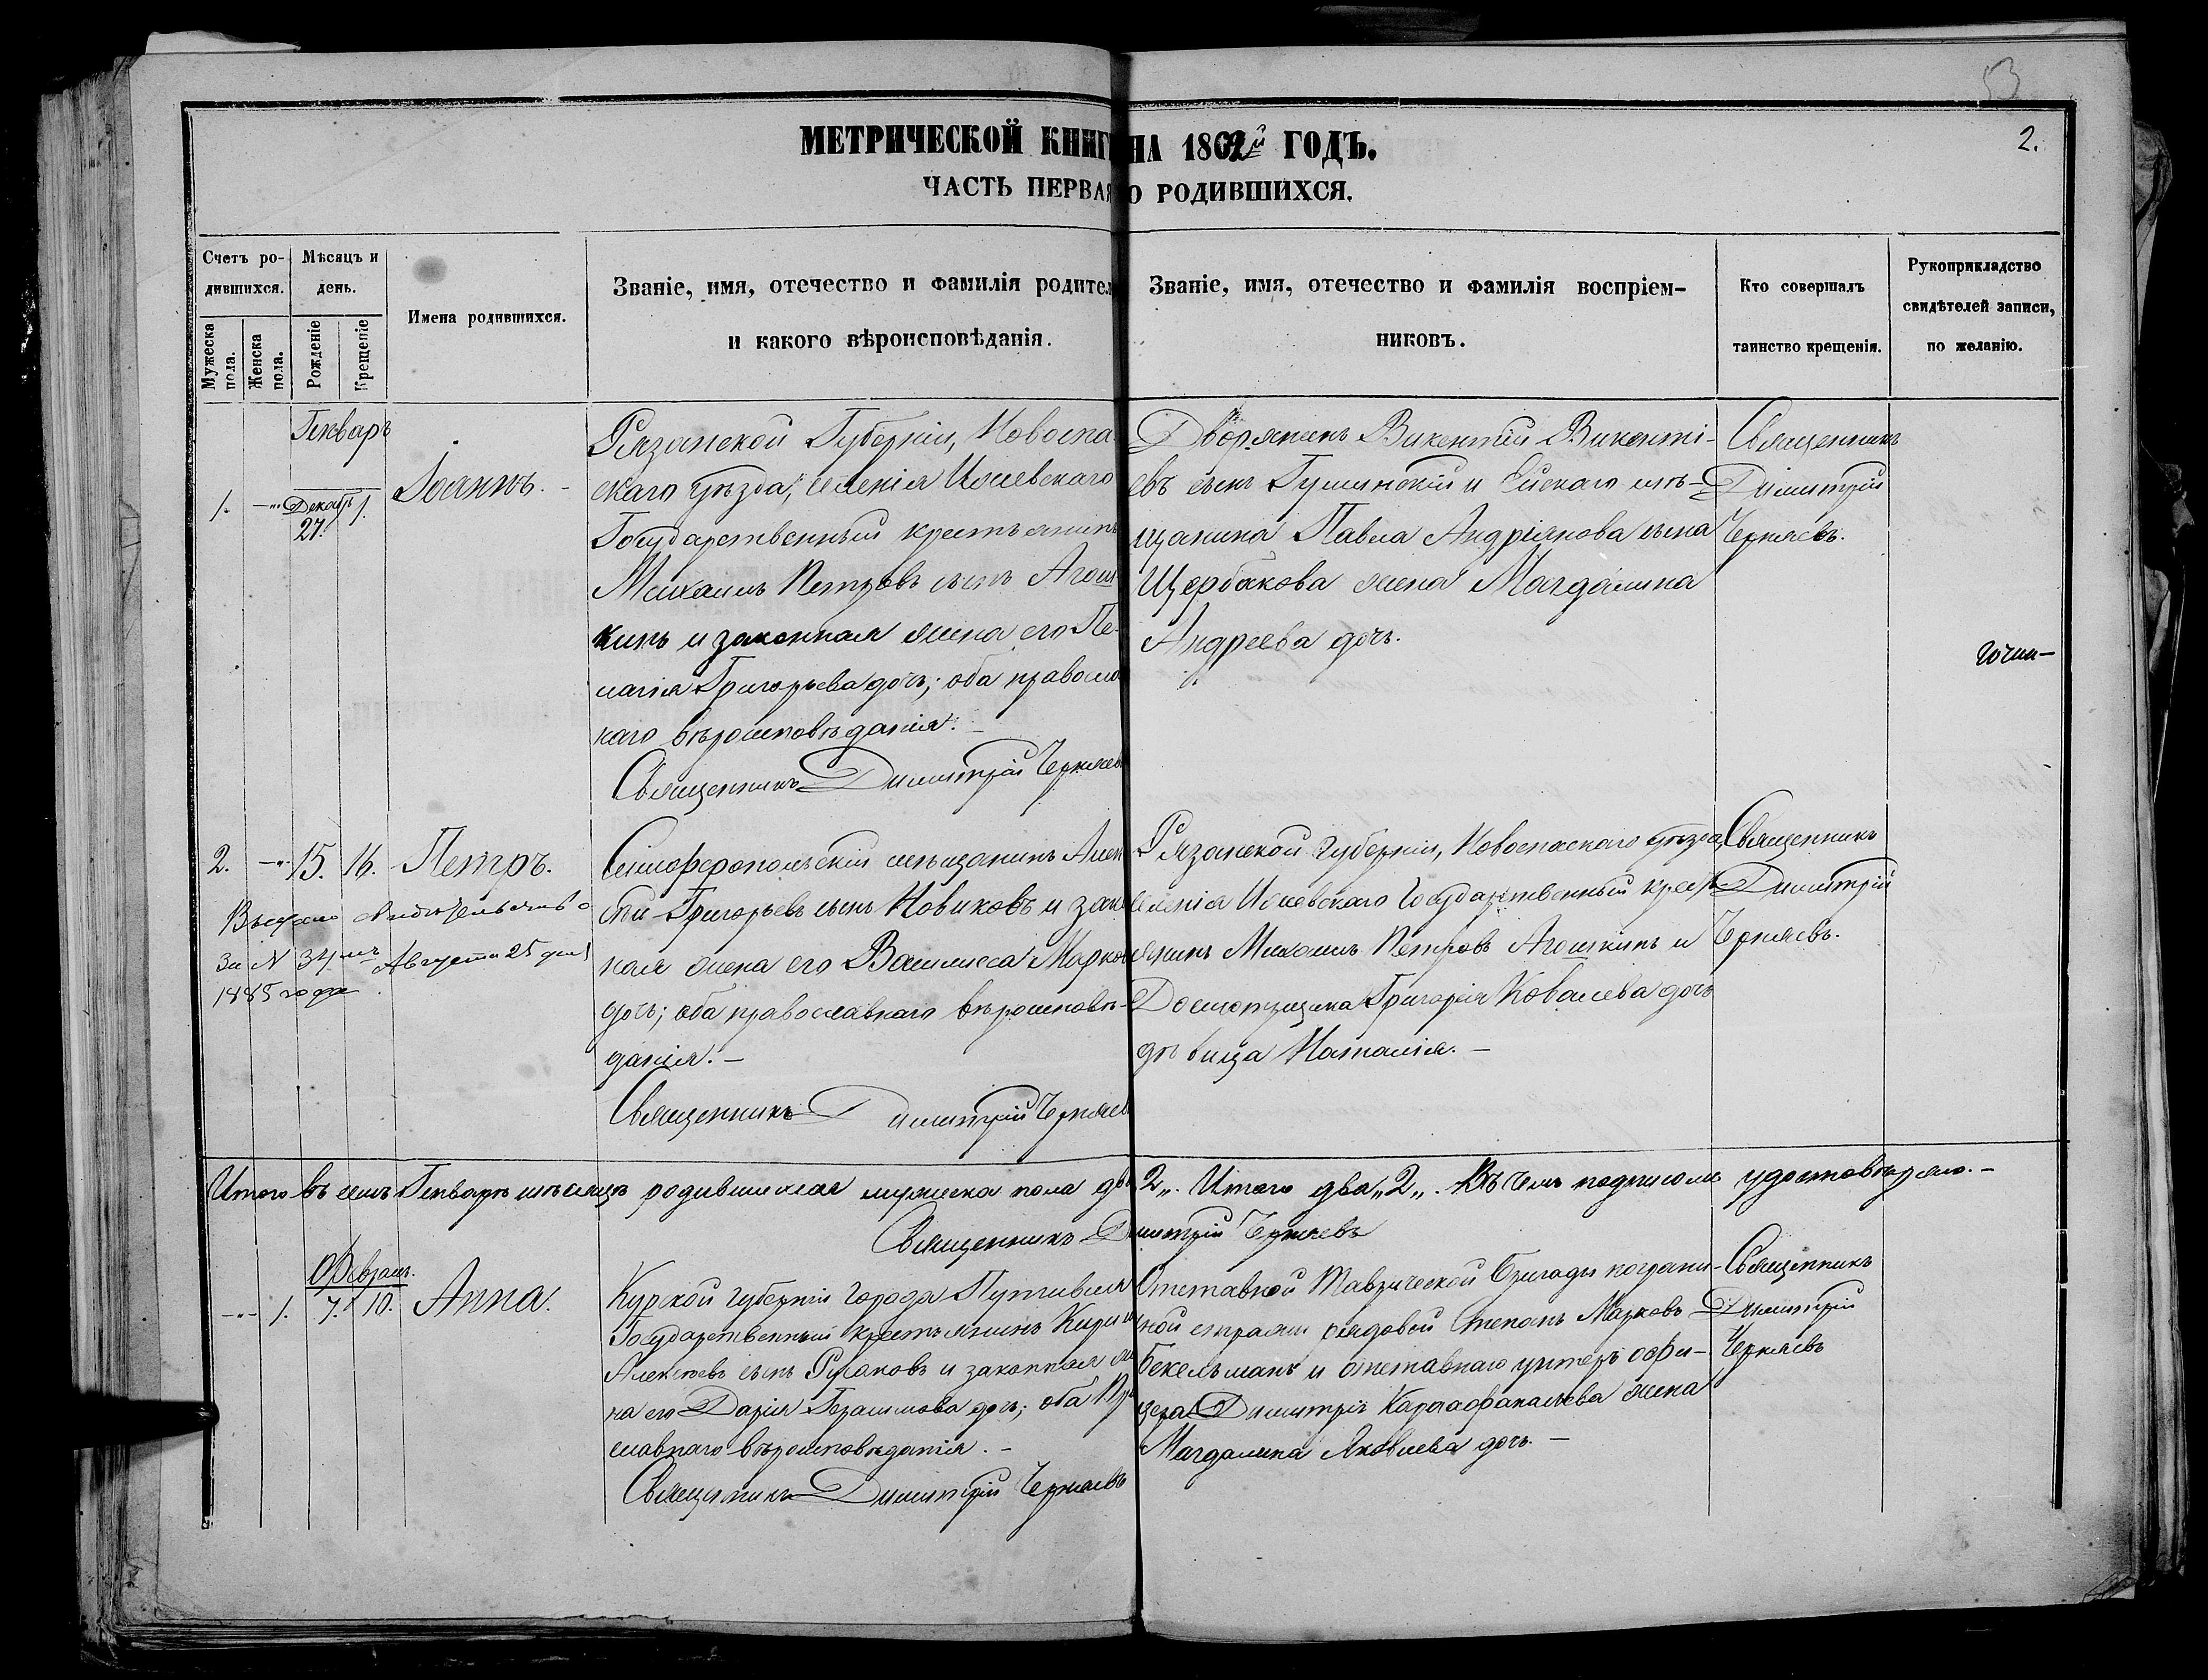 53
2.
МЕТРИЧЕСКОЙ КНИГ НА 1862й ГОДЪ.
ЧАСТЬ ПЕРВАЯ О РОДИВШИХСЯ.
Счетъ ро-
дившихся.
Мужеска пола.
Женска пола.
Мѣсяцъ и
день.
Рожденіе
Крещеніе
Имена родившихся.
Званіе, имя, отечество и фамилія родител
и какого вѣроисповѣданія.
Званіе, имя, отечество и фамилія воспріем-
никовъ.
Кто совершалъ
таинство крещенія.
Рукоприкладство
свидѣтелей записи,
по желанію.
Генварь
1. Декабр 27. 1.
Іоаннъ.
Рязанской Губерніи, Новоспа
скаго уѣзда, селенія
Государственный крестьянинъ
Михаилъ Петровъ сынъ Агош
кинъ и законная жена его Пе-
лагія Григорьева дочь; оба правосла
наго вѣроисповѣданія.
Священникъ Димитрій Черняевъ
Дворянинъ Викентій Викенті-
евъ сынъ Гушинскій и Ейскаго мѣ-
щанина Павла Андріянова сына
Щербакова жена Магдалина
Андреева дочь.
Священникъ
Димитрій
Черняевъ.
2. 15. 16. Петръ.
Выдано свидѣтельство
За N 34мъ Августа 25 дня
1885 года.
Симферопольскій мѣщанинъ Алек
сѣй Григорьевъ сынъ Новиковъ и зако
ная жена его Василисса Марков
дочь; оба православнаго вѣроисповѣ-
данія.
Священникъ Димитрій Черняев
Рязанской Губерніи, Новоспаскаго уѣзда,
селенія Государственный крест-
янинъ Михаилъ Петровъ Агошкинъ и
Досмотрщика Григорія Ковалева дочь
дѣвица Наталія.
Священникъ
Димитрій
Черняевъ.
Итого въ семъ Генварѣ мѣсяцѣ родившихся мужеска пола два 2„. Итого два „2„. Въ чемъ подписомъ удостовѣряю.
Священникъ Димитрій Черняевъ
Февраль.
1. 7. 10. Анна.
Курской губерніи города Путивля
Государственный крестьянинъ Кирил
Алексѣевъ сынъ Русановъ и законная же
на его Дарія Герасимова дочь; оба Пра
славнаго вѣроисповѣданія.
Священникъ Димитрій Черняевъ
Отставной Таврической Бригады погранич-
ной стражи рядовой Степанъ Марковъ
Бекельманъ и отставнаго унтеръ офи-
цера Димитрія жена
Магдалина Яковлева дочь.
Священникъ
Димитрій
Черняевъ